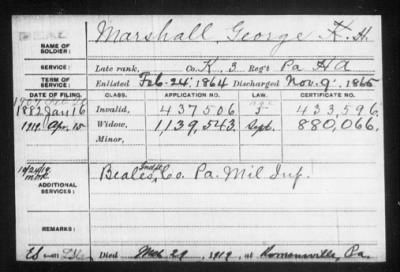 NAME OF SOLDIER: Marshall, George K. H.
SERVICE: Late rank, Co. K, 3 Reg't Pa HA
TERM OF SERVICE: Enlisted Feb. 24, 1864 Discharged Nov. 9, 1865
DATE OF FILING. CLASS. APPLICATION NO. LAW. CERTIFICATE NO.
1882 Jan 16 Invalid, 437,506 433,596
1919. Apr. 15 Widow, 1,139,543 Sept. 880,066.
Minor,
ADDITIONAL SERVICES: Beales Indpt. Co. Pa. Mil Inf.
REMARKS:
Died Mch 29, 1919, at Romansville, Pa.